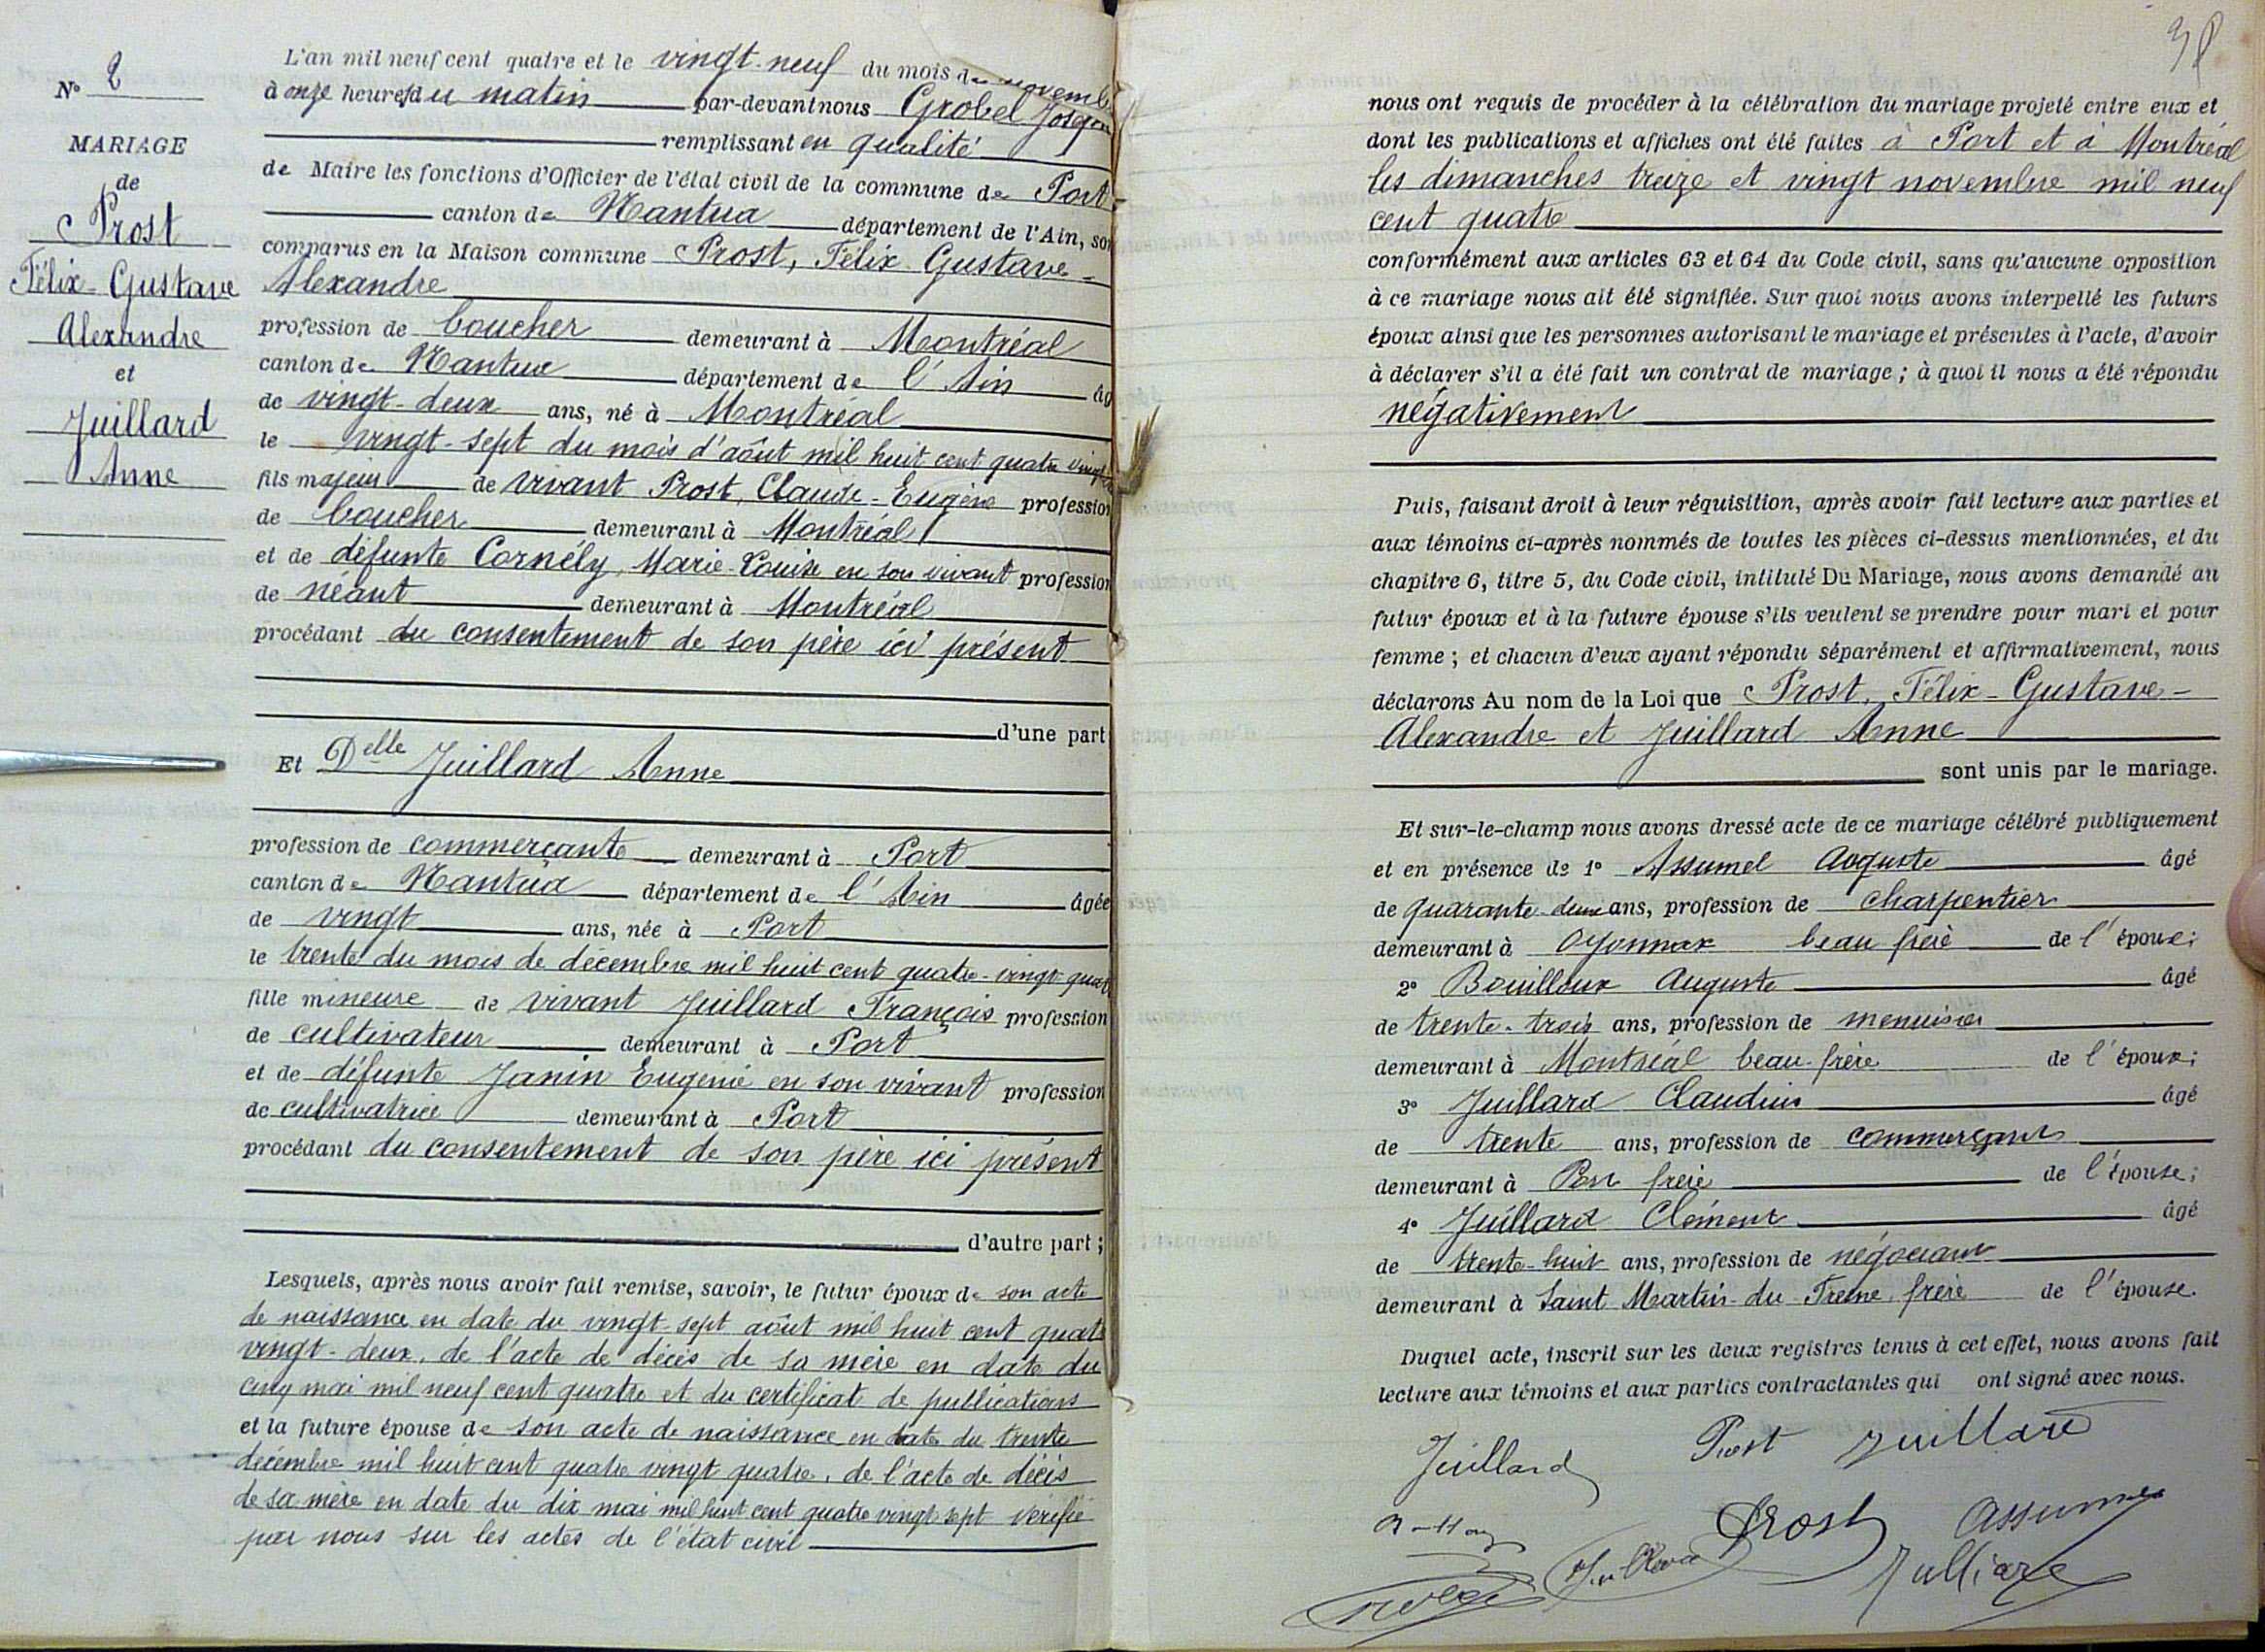 N° 2
MARIAGE
de
Prost
Félix-Gustave
Alexandre
et
Juillard
Anne
L'an mil neuf cent quatre et le vingt-neuf du mois de novemb
à onze heures du matin par-devant nous Grobel Joseph
remplissant en qualité
de Maire les fonctions d'Officier de l'état civil de la commune de Port
canton de Nantua département de l'Ain, son
comparus en la Maison commune Prost, Félix-Gustave-
Alexandre
profession de boucher demeurant à Montréal
canton de Nantua département de l'Ain âg
de vingt-deux ans, né à Montréal
le vingt-sept du mois d'août mil huit cent quatre vingt
fils majeur de vivant Prost, Claude-Eugène profession
de boucher demeurant à Montréal
et de défunte Cornély, Marie-Louise en son vivant profession
de néant demeurant à Montréal
procédant du consentement de son père ici présent
d'une part
Et Delle Juillard Anne
profession de commerçante demeurant à Port
canton de Nantua département de l'Ain âgée
de vingt ans, née à Port
le trente du mois de décembre mil huit cent quatre-vingt quat
fille mineure de vivant Juillard François profession
de cultivateur demeurant à Port
et de défunte Janin Eugénie en son vivant profession
de cultivatrice demeurant à Port
procédant du consentement de son père ici présent
d'autre part ;
Lesquels, après nous avoir fait remise, savoir, le futur époux de son acte
de naissance en date du vingt-sept août mil huit cent quatre
vingt-deux, de l'acte de décès de sa mère en date du
cinq mai mil neuf cent quatre et du certificat de publications
et la future épouse de son acte de naissance en date du trente
décembre mil huit cent quatre vingt quatre, de l'acte de décès
de sa mère en date du dix mai mil huit cent quatre vingt sept vérifié
par nous sur les actes de l'état civil
38
nous ont requis de procéder à la célébration du mariage projeté entre eux et
dont les publications et affiches ont été faites à Port et à Montréal
les dimanches treize et vingt novembre mil neuf
cent quatre
conformément aux articles 63 et 64 du Code civil, sans qu'aucune opposition
à ce mariage nous ait été signifiée. Sur quoi nous avons interpellé les futurs
époux ainsi que les personnes autorisant le mariage et présentes à l'acte, d'avoir
à déclarer s'il a été fait un contrat de mariage ; à quoi il nous a été répondu
négativement
Puis, faisant droit à leur réquisition, après avoir fait lecture aux parties et
aux témoins ci-après nommés de toutes les pièces ci-dessus mentionnées, et du
chapitre 6, titre 5, du Code civil, intitulé Du Mariage, nous avons demandé au
futur époux et à la future épouse s'ils veulent se prendre pour mari et pour
femme ; et chacun d'eux ayant répondu séparément et affirmativement, nous
déclarons Au nom de la Loi que Prost, Félix-Gustave-
Alexandre et Juillard Anne
sont unis par le mariage.
Et sur-le-champ nous avons dressé acte de ce mariage célébré publiquement
et en présence de 1° Assumel Auguste âgé
de quarante-deux ans, profession de charpentier
demeurant à Oyonnax beau frère de l'époux ;
2° Bouilloux Auguste âgé
de trente-trois ans, profession de menuisier
demeurant à Montréal beau-frère de l'époux ;
3° Juillard Claudius âgé
de trente ans, profession de commerçant
demeurant à Port frère de l'épouse ;
4° Juillard Clément âgé
de trente-huit ans, profession de négociant
demeurant à Saint Martin-du-Frene, frère de l'épouse.
Duquel acte, inscrit sur les deux registres tenus à cet effet, nous avons fait
lecture aux témoins et aux parties contractantes qui ont signé avec nous.
Juillard Prost Juillard
Prost Assumel
Julliard